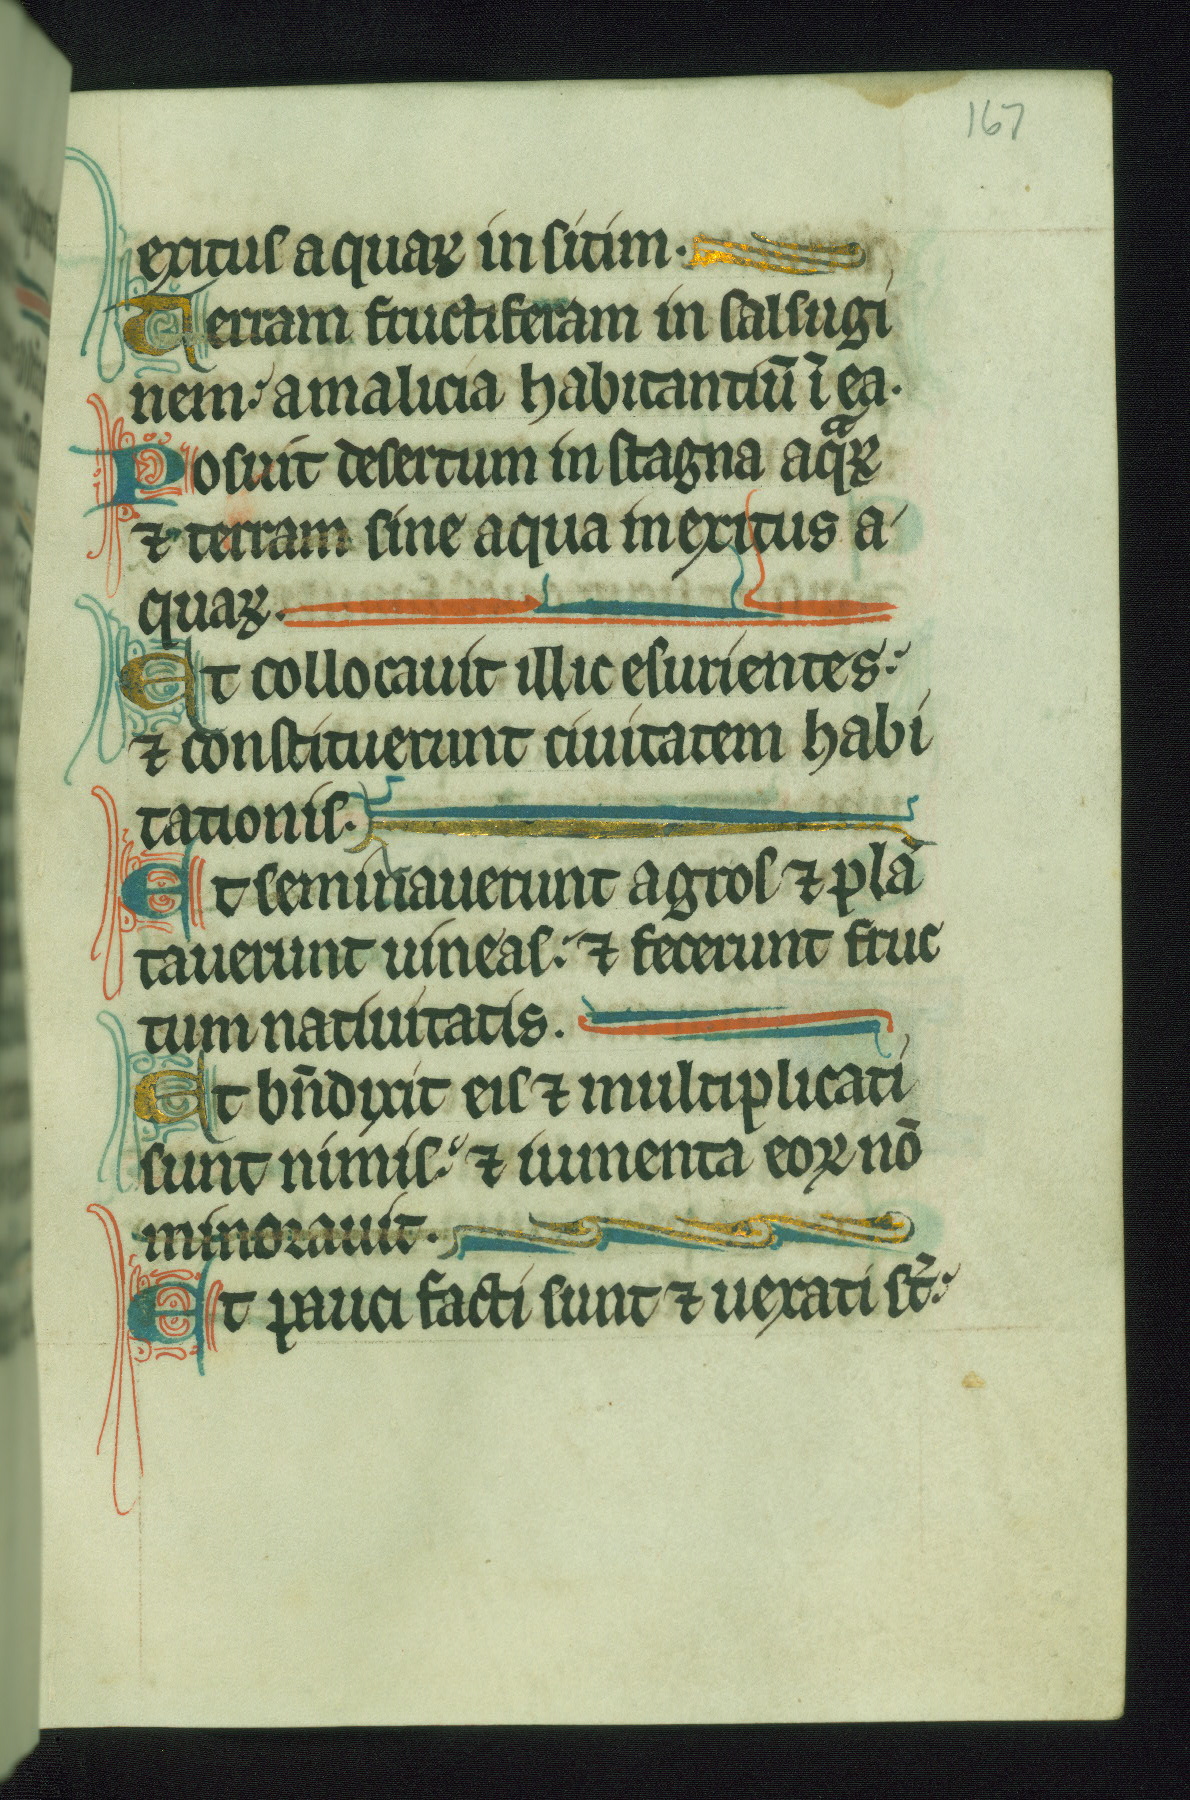 167
exitus aquaꝝ in sitim.
Terram fructiferam in salsugi
nem: amalicia habitantiū ī ea.
Posuit desertum in stagna aqᵃꝝ
⁊ terram sine aqua in exitus a
quaꝝ.
Et collocauit illic esurientes:
⁊ constituerunt ciuitatem habi
tationis.
Et seminauerunt agros ⁊ plā
tauerunt uineas: ⁊ fecerunt fruc
tum natiuitatis.
Et bn̄dixit eis ⁊ multiplicati
sunt nimis: ⁊ iumenta eoꝝ nō
minorauit.
Et pauci facti sunt ⁊ uexati st̄: